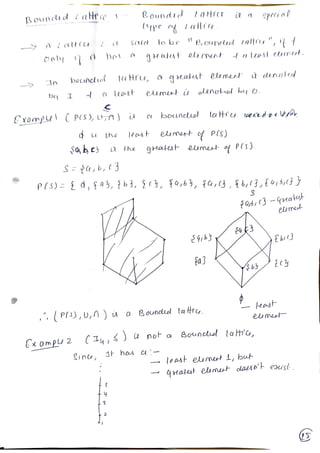 Bounded Lattice :- Bounded Lattice is a special
type of Lattice
→ A Lattice L is said to be "Bounded lattice", if
only if it has a greatest element & a least element.
→ In bounded lattice, a greatest element is denoted
by I & a least element is denoted by 0.
Example 1 (P(S), ∪, ∩) is a bounded lattice
ϕ is the least element of P(S)
{a, b, c} is the greatest element of P(S).
S = {a, b, c}
P(S) = { ϕ, {a}, {b}, {c}, {a,b}, {a,c}, {b,c}, {a,b,c} }
S
{a,b,c} - greatest
element
{a,b}
{b,c}
{a}
{b}
{c}
ϕ - least
element
∴ (P(S), ∪, ∩) is a Bounded lattice.
Example 2 (I₊, ≤) is not a Bounded lattice,
Since, It has a :-
→ least element 1, but
→ greatest element doesn't exist.
5
4
3
2
1
13